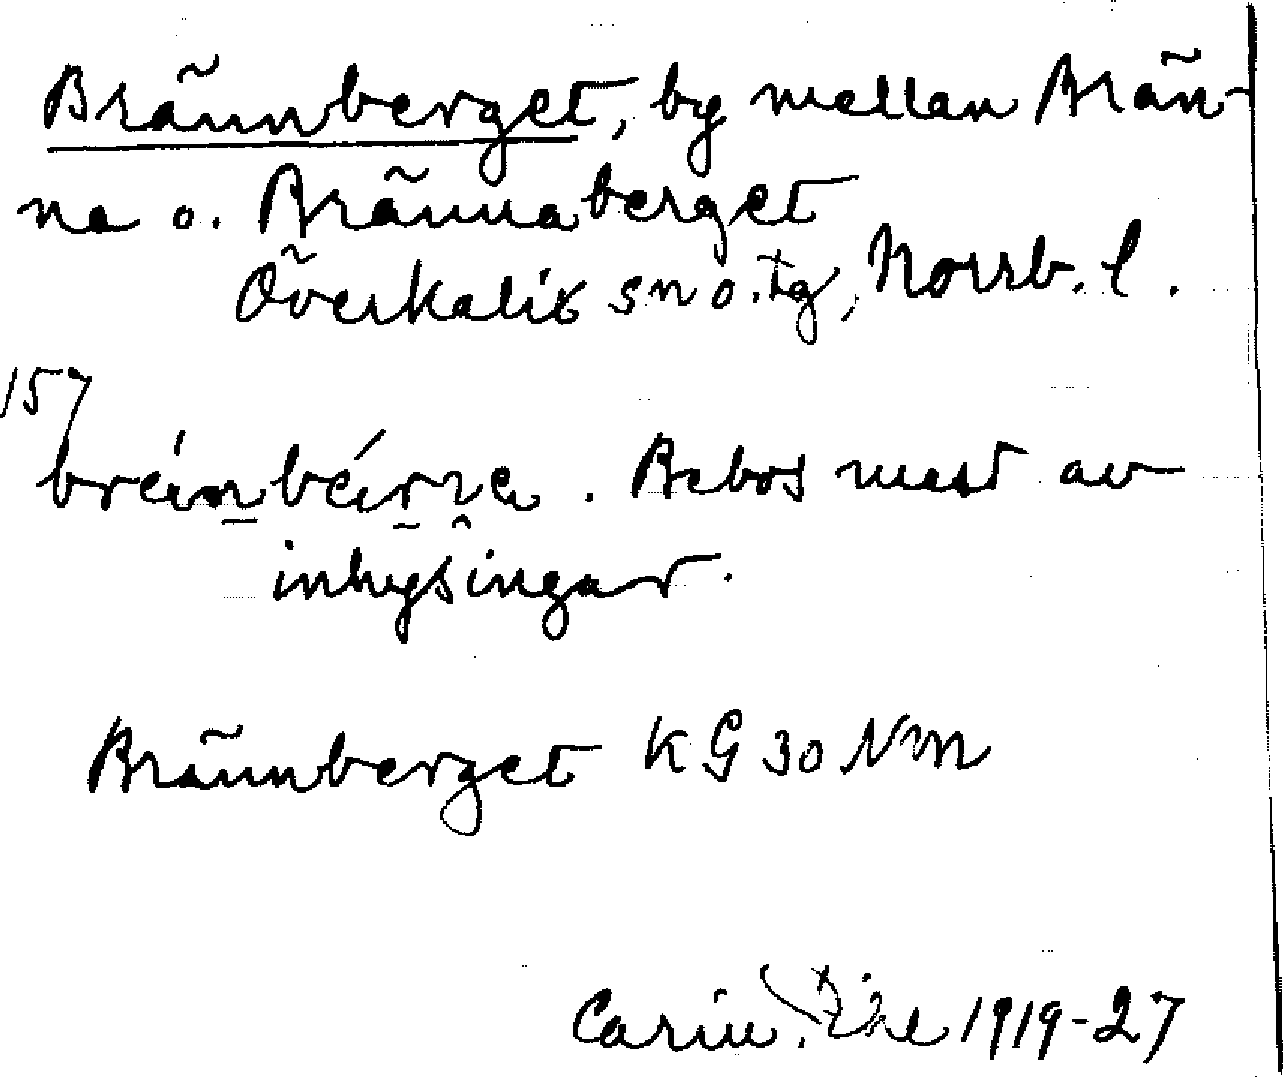 Brännberget, by mellan Brän-
na o. Brännaberget
Överkalix sn o. tg, Norrb. l.
157
Bebos mest av
inhysingar.
Brännberget KG 30 NM
Carin Pihl 1919-27